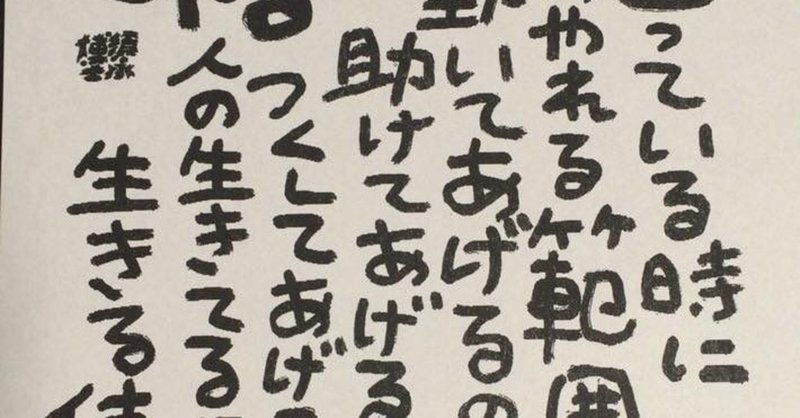 っている時に
やれる範囲
動いてあげるの
助けてあげる
つくしてあげ
人の生きてる
生きる